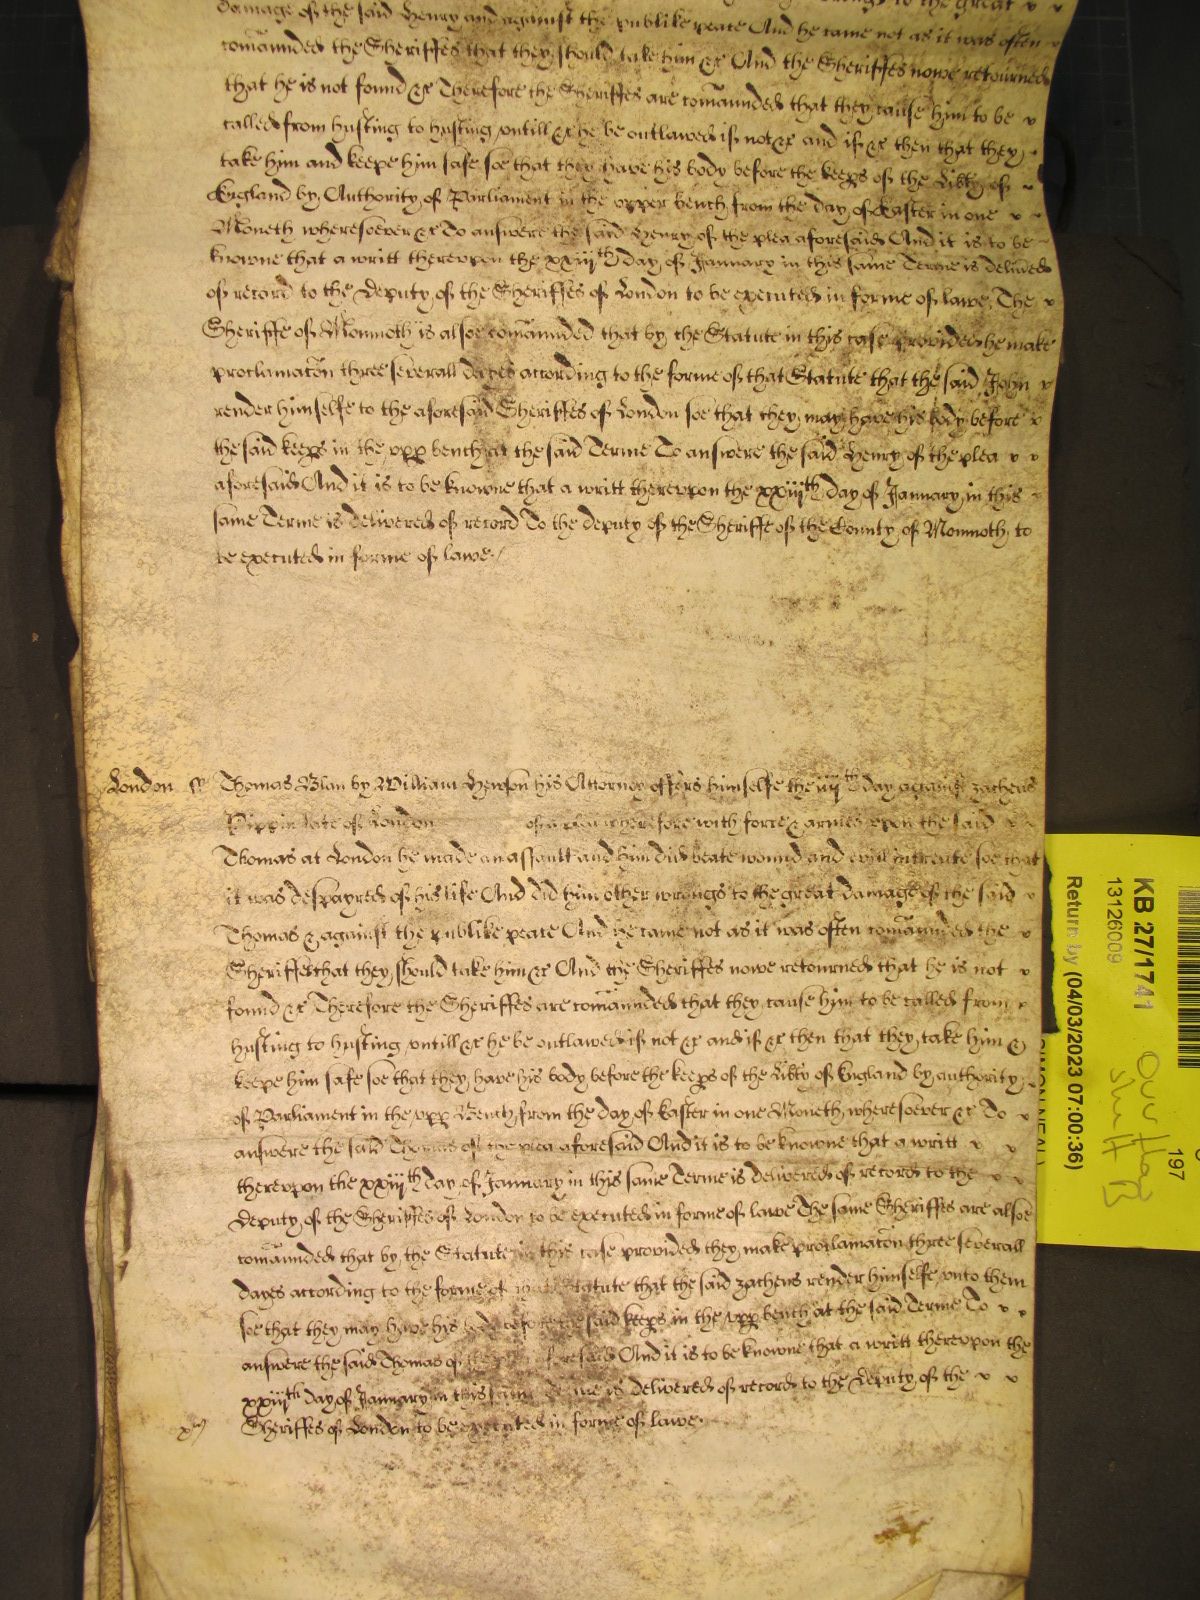 damage of the said Henry and against the publike peace And he came not as it was often
comaunded the Sheriffes that they should take him &c And the Sheriffes nowe retourned
that he is not found &c Therefore the Sheriffes are comaunded that they cause him to be
called from husting to husting untill &c he be outlawed if not &c and if &c then that they
take him and keepe him safe soe that they have his body before the keeps of the Libty of
England by Authority of Parliament in the upper bench from the day of Easter in one
Moneth wheresoever &c To answere the said Henry of the plea aforesaid And it is to be
knowne that a writt thereupon the xxiijth day of January in this same Terme is delived
of record to the Deputy of the Sheriffes of London to be executed in forme of lawe. The
Sheriffe of Monmoth is alsoe comaunded that by the Statute in this case provided he make
proclamacon three severall dayes according to the forme of that Statute that the said John
render himselfe to the aforesaid Sheriffes of London soe that they may have his body before
the said keeps in the upp bench at the said Terme To answere the said Henry of the plea
aforesaid And it is to be knowne that a writt thereupon the xxiijth day of January in this
same Terme is delivered of record To the deputy of the Sheriffe of the County of Monmoth to
be executed in forme of lawe
London ss Thomas Blan by William Hewson his Attorney offers himselfe the iiijth day against Zacheus
Pippin late of London of a plea wherefore with force & armes upon the said
Thomas at London he made an assault and him did beate wound and evill intreate soe that
it was despayred of his life And did him other wrongs to the great damage of the said
Thomas & against the publike peace And he came not as it was often comaunded the
Sheriffes that they should take him &c And the Sheriffes nowe retourned that he is not
found &c Therefore the Sheriffes are comaunded that they cause him to be called from
husting to husting untill &c he be outlawed if not &c and if &c then that they take him &
keepe him safe soe that they have his body before the keeps of the Libty of England by authority
of Parliament in the upp Bench from the day of Easter in one Moneth wheresoever &c To
answere the said Thomas of the plea aforesaid And it is to be knowne that a writt
thereupon the xxiijth day of January in this same Terme is delivered of record to the
Deputy of the Sheriffes of London to be executed in forme of lawe The same Sheriffes are alsoe
comaunded that by the Statute in this case provided they make proclamacon three severall
dayes according to the forme of that Statute that the said Zacheus render himselfe unto them
soe that they may have his body before the said keeps in the upp bench at the said Terme To
answere the said Thomas of the plea aforesaid And it is to be knowne that a writt thereupon the
xxiijth day of January in this same Terme is delivered of record to the Deputy of the
Sheriffes of London to be executed in forme of lawe
KB 27/1741
13126009
Return by (04/03/2023 07:00:36)
197